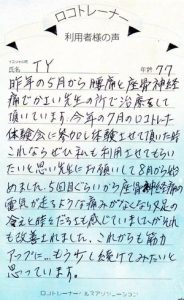 ロコトレーナー
利用者様の声
氏名 TY 年齢 77
昨年の5月から腰痛と座骨神経
痛でかエい先生の所で治療をして
頂いています。今年の7月のロコトレーナー
体験会に参加し体験させて頂いた時
これならぜひ私も利用させてもらい
たいと思い先生にお願いして8月から始
めました。5回目ぐらいから座骨神経痛の
電気が走るような痛みがなくなり足の
冷えと時々だるさも感じていましたがそれ
も改善されました。これからも筋力
アップに…もう少し続けてみたいと
思っています。